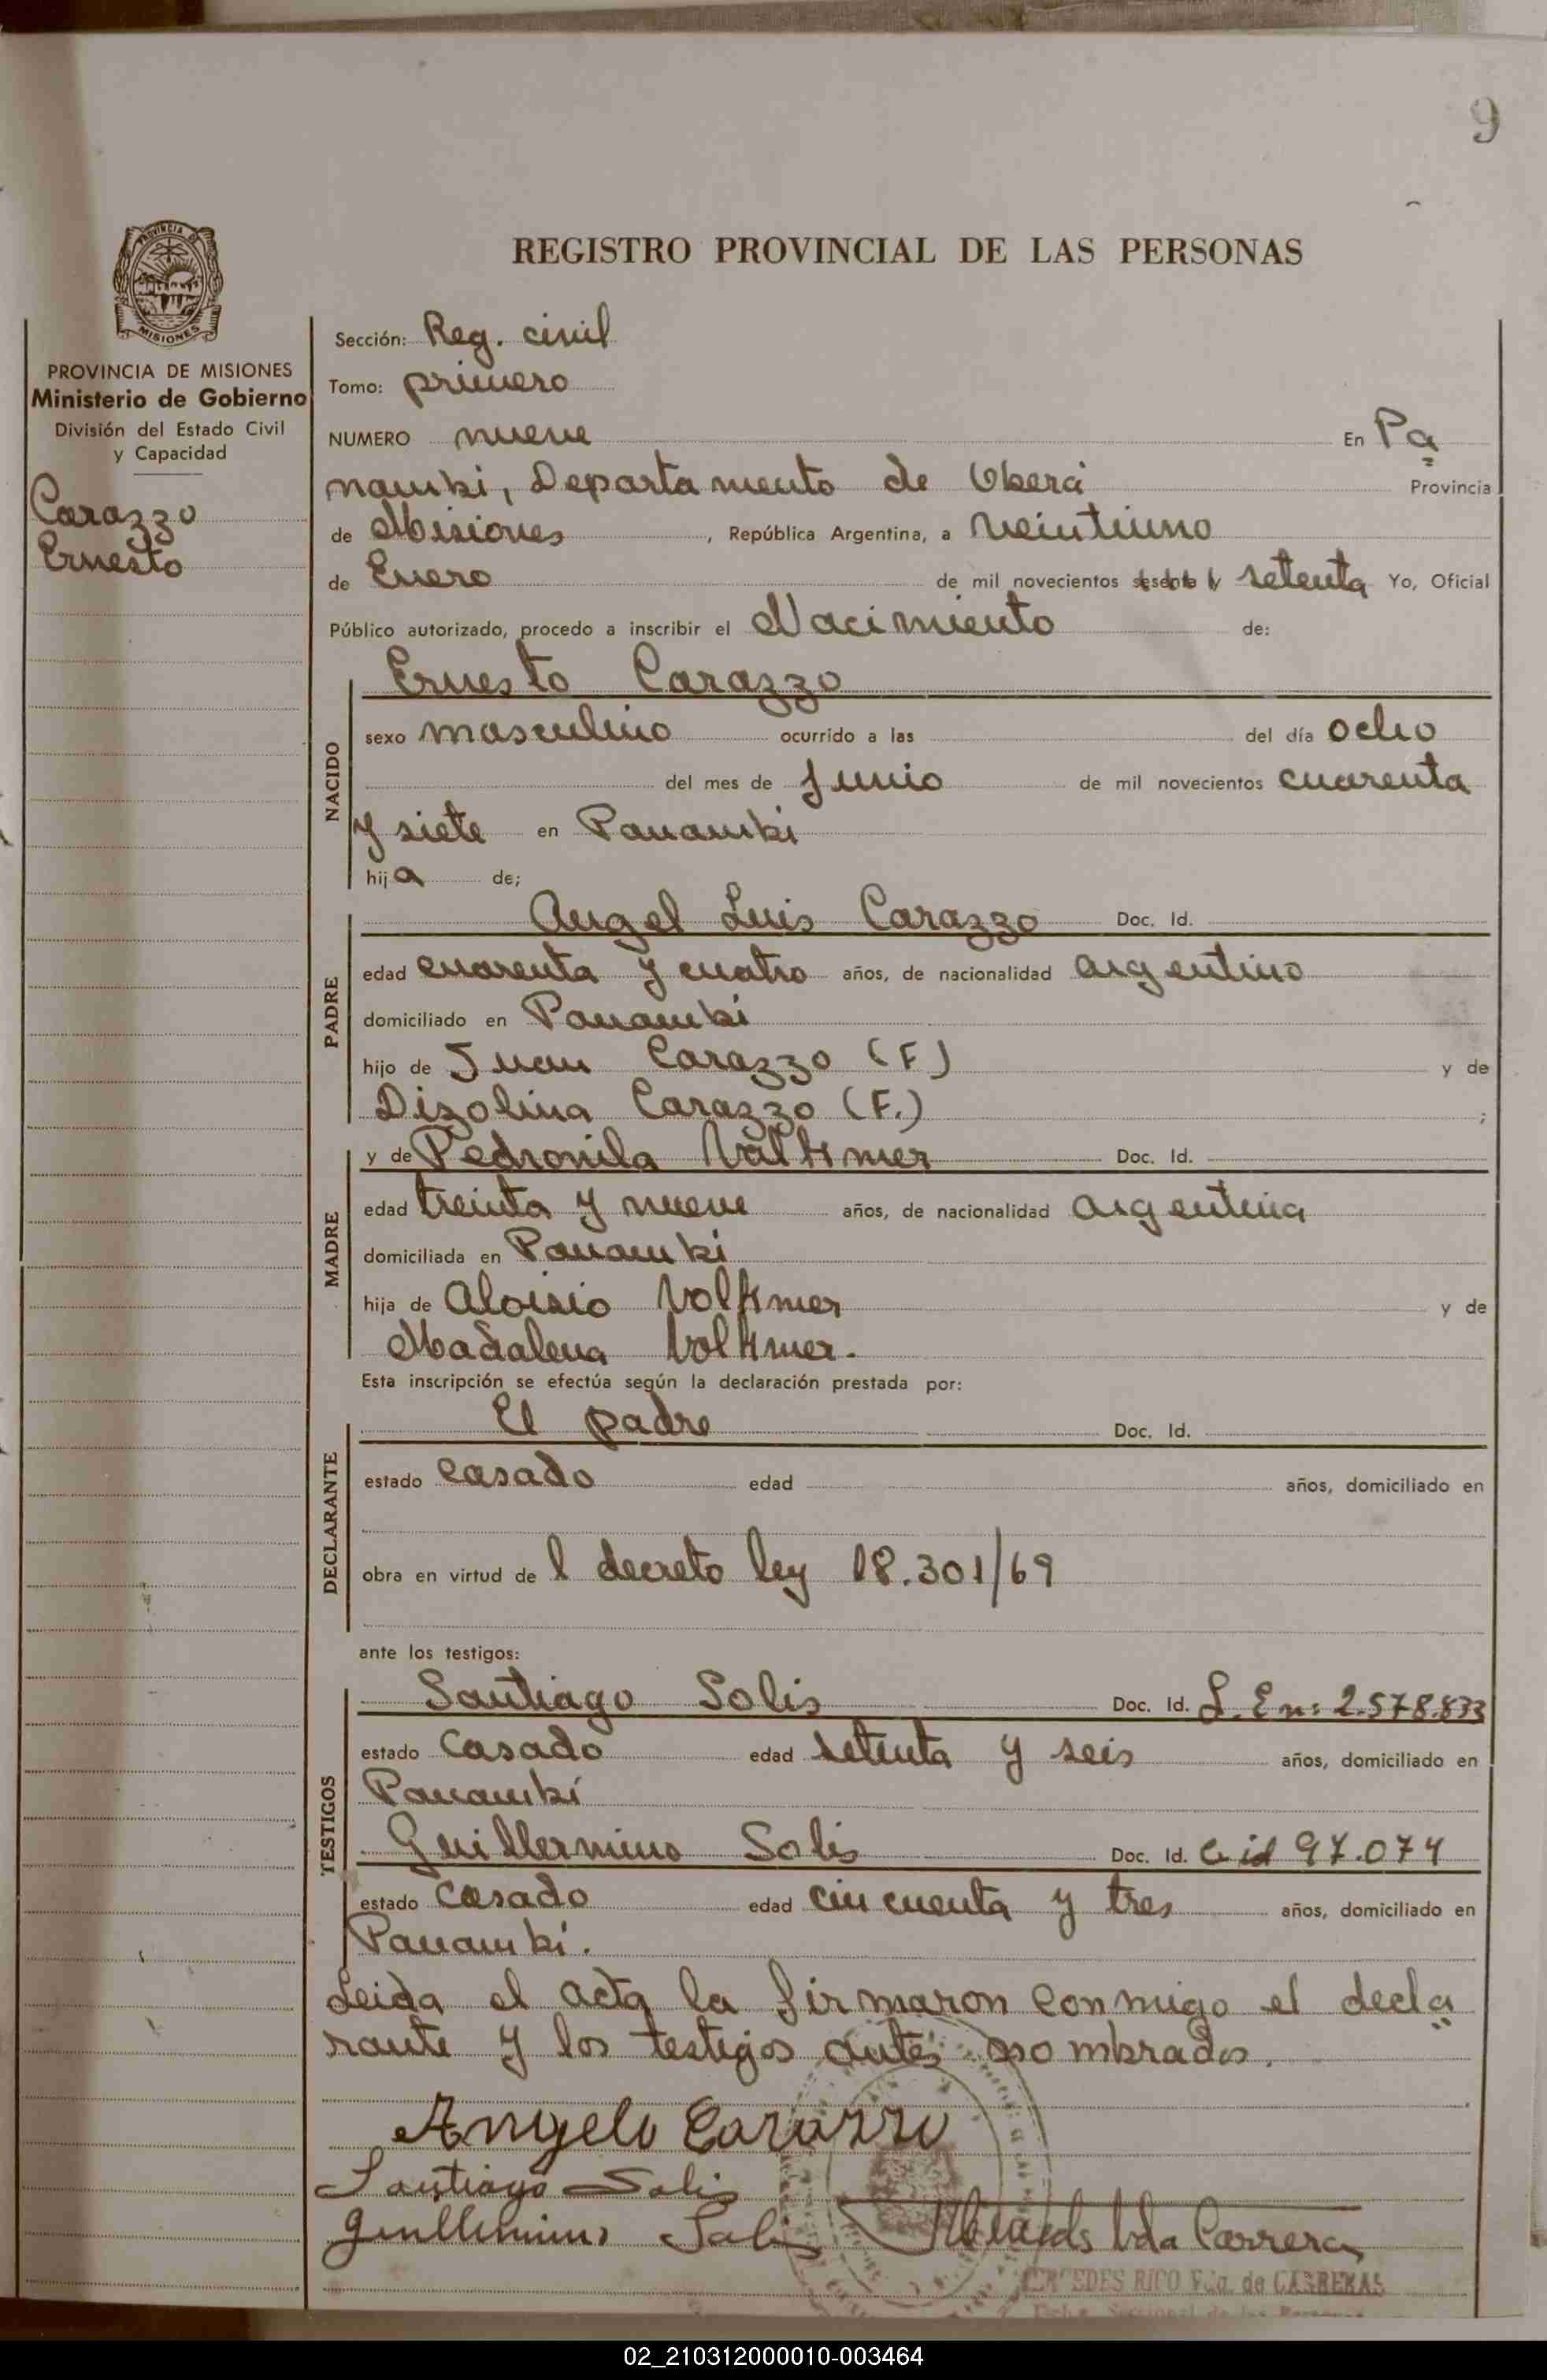 9
REGISTRO PROVINCIAL DE LAS PERSONAS
PROVINCIA DE
MISIONES
PROVINCIA DE MISIONES
Ministerio de Gobierno
División del Estado Civil
y Capacidad
Carazzo
Ernesto
Sección: Reg. civil
Tomo: primero
NUMERO nueve En Pa
nambi, Departamento de Oberá Provincia
de Misiones, República Argentina, a veintiuno
de Enero de mil novecientos sesenta y setenta Yo, Oficial
Público autorizado, procedo a inscribir el Nacimiento de:
Ernesto Carazzo
NACIDO
sexo masculino ocurrido a las del día ocho
del mes de Junio de mil novecientos cuarenta
y siete en Panambi
hija de;
PADRE
Angel Luis Carazzo Doc. Id.
edad cuarenta y cuatro años, de nacionalidad argentino
domiciliado en Panambi
hijo de Juan Carazzo (F) y de
Dizolina Carazzo (F.) ;
MADRE
y de Pedronila Volkmer Doc. Id.
edad treinta y nueve años, de nacionalidad argentina
domiciliada en Panambi
hija de Aloisio Volkmer y de
Madalena Volkmer.
Esta inscripción se efectúa según la declaración prestada por:
DECLARANTE
El padre Doc. Id.
estado casado edad años, domiciliado en
obra en virtud del decreto ley 18.301/69
ante los testigos:
TESTIGOS
Santiago Solis Doc. Id. L. E nº 2.578.833
estado casado edad setenta y seis años, domiciliado en
Panambí
Guillermino Solis Doc. Id. C id 97.074
estado casado edad cincuenta y tres años, domiciliado en
Panambi.
Leida el acta la firmaron conmigo el decla
rante y los testigos antes nombrados.
Angelo Carazzo
Santiago Solis
Guillermino Solis
Vda Carreras
MERCEDES RICO Vda. de CARRERAS
02_210312000010-003464